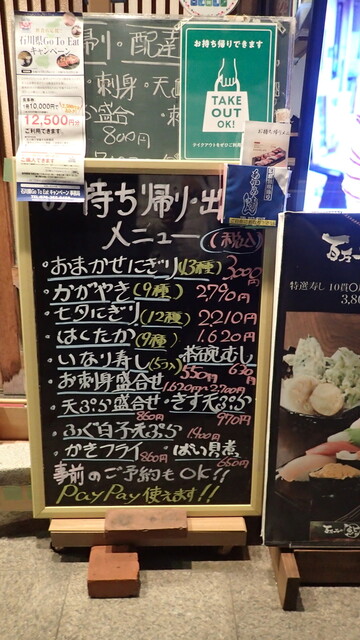 石川県Go To Eat
キャンペーン
10,000円
12,500円分
ご利用できます
石川県Go To Eat キャンペーン事務局
帰り・配達
・刺身・天
盛合
800円
お持ち帰りできます
TAKE
OUT
OK!
テイクアウトをぜひご利用ください
お持ち帰り
持ち帰り・出
メニュー (税込)
・おまかせにぎり(13種) 3000円
・かがやき(9種) 2790円
・七夕にぎり(12種) 2,210円
・はくたか(9種) 1.620円
・いなり寿し(5つ入) 550円 ・茶碗むし 630円
・お刺身盛合せ 1,620円~2,700円
・天ぷら盛合せ 860円 ・きす天ぷら 970円
・ふぐ白子天ぷら 1.400円
・かきフライ 860円 ・ばい貝煮 660円
事前のご予約もOK!!
PayPay使えます!!
特選寿し 10貫
3,8